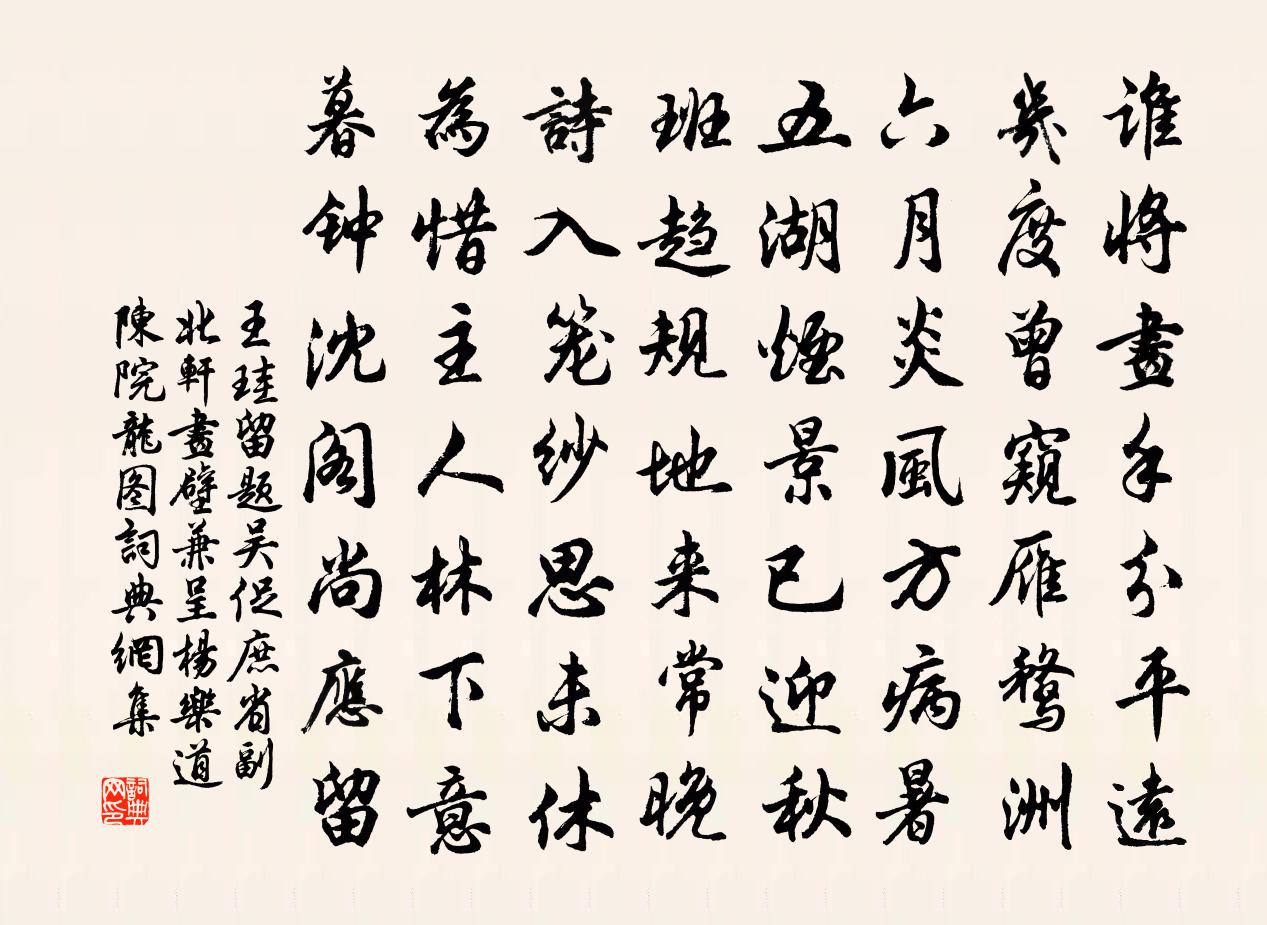 谁將畫手分平遠
幾度曾窺雁鶩洲
六月炎風方病暑
五湖煙景已迎秋
班趋規地来常晚
詩入笼纱思未休
為惜主人林下意
暮钟沈阁尚應留
王珪留题吴促庶省副
北軒畫壁兼呈楊樂道
陳院龍图詞典網集
詞典网印